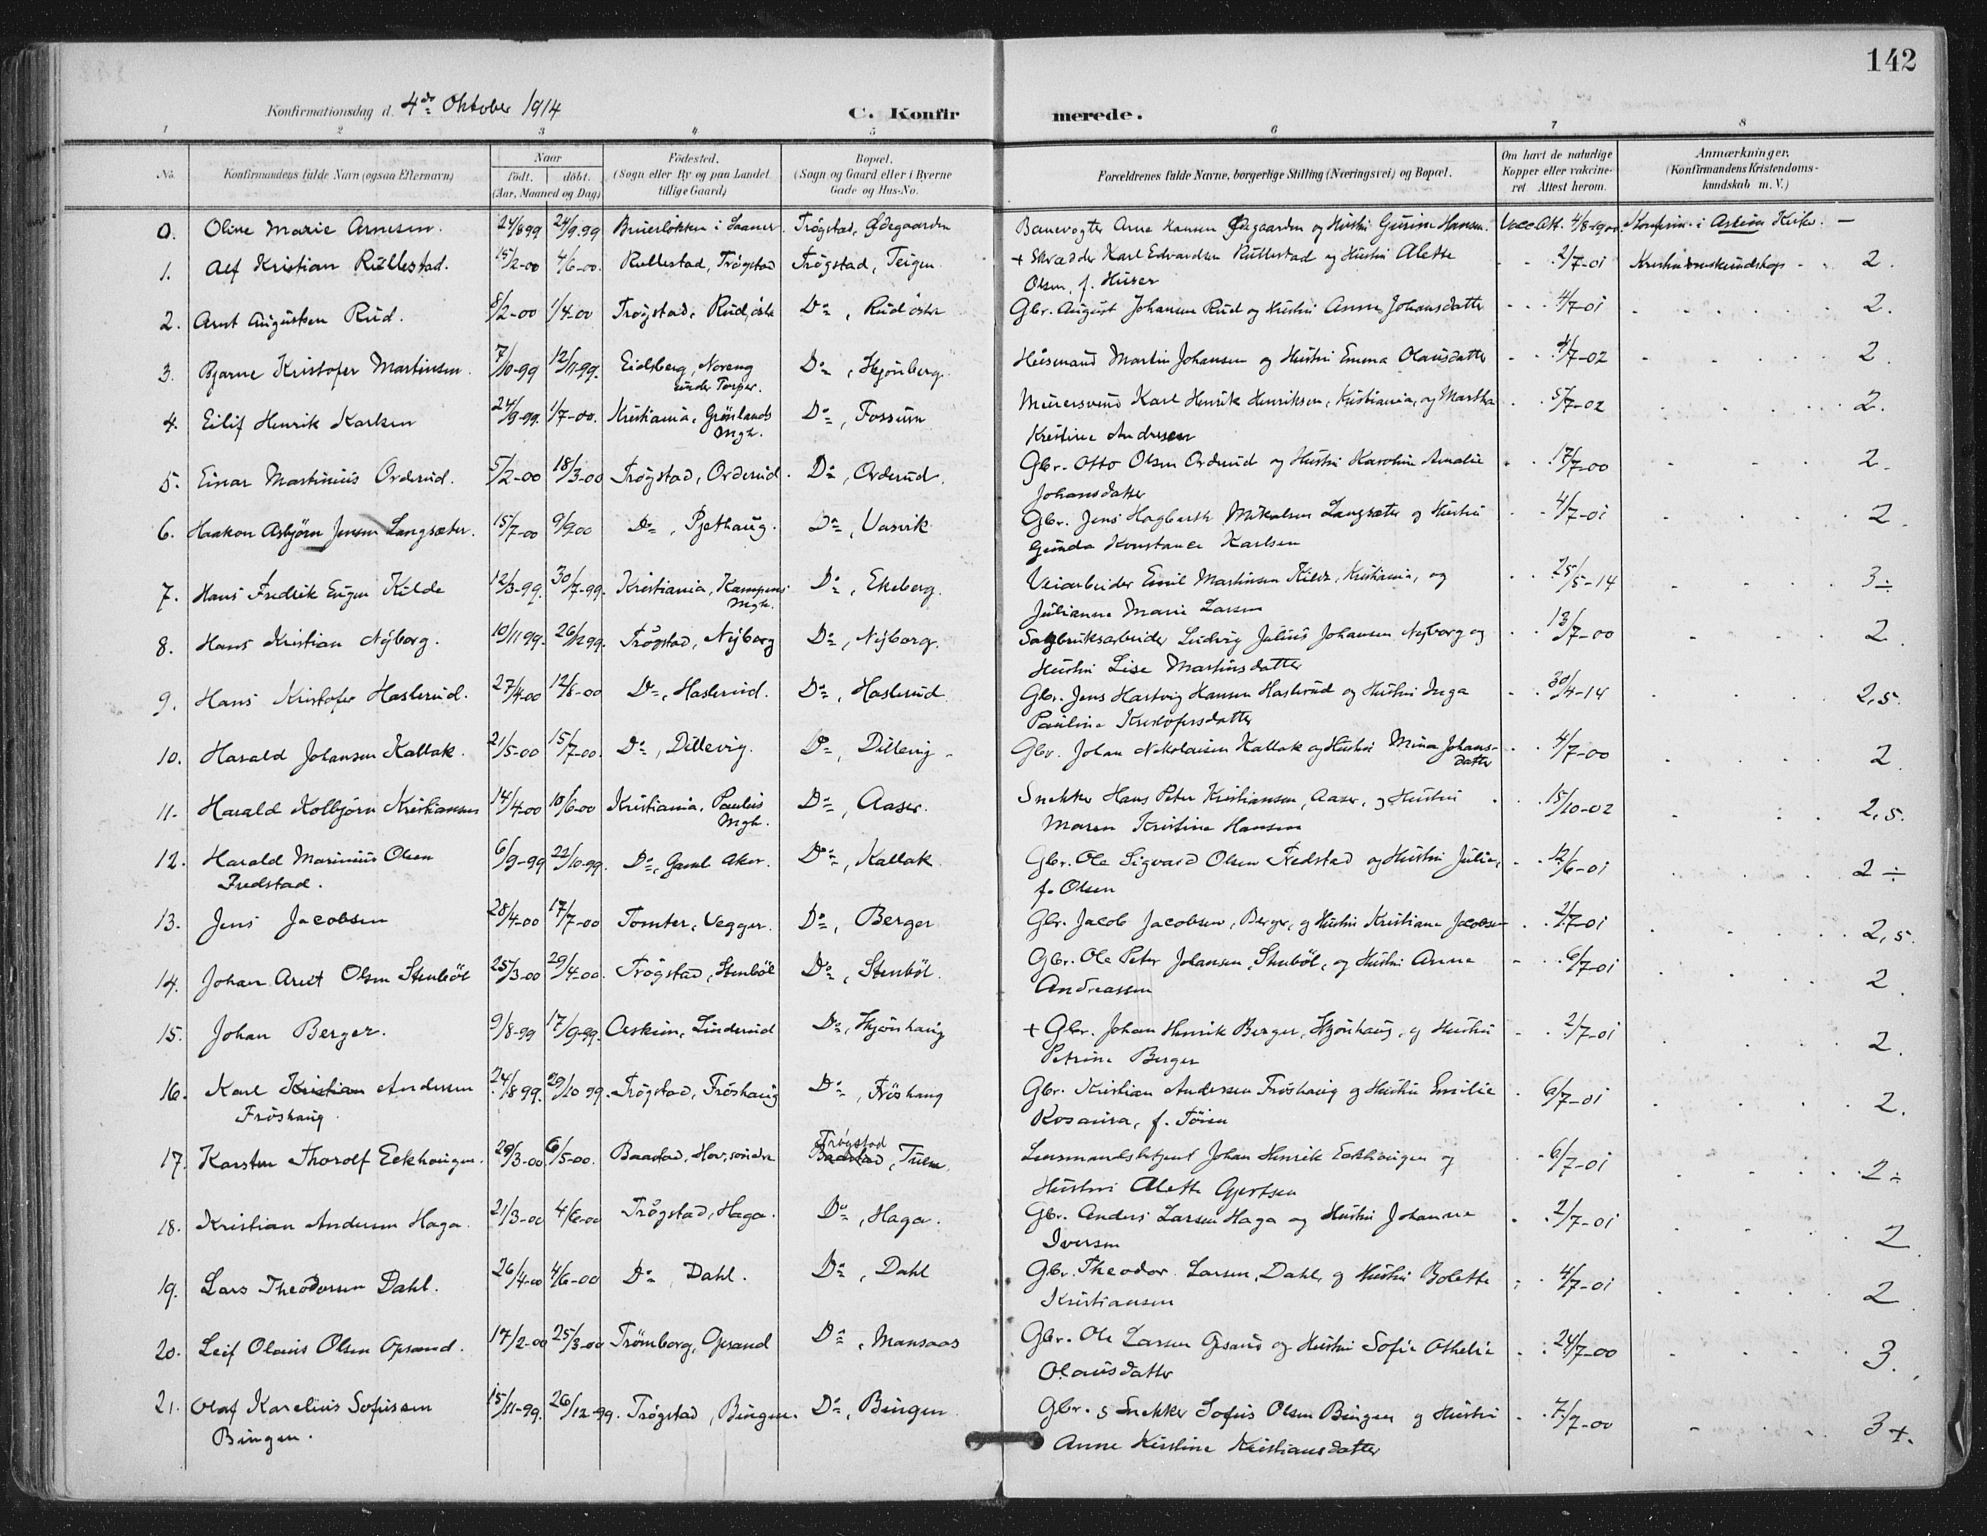 142
Konfirmationsdag d. 4de Oktober 1914
C. Konfirmerede.
1 2 3 4 5 6 7 8
No. Konfirmandens fulde Navn (ogsaa Efternavn) Naar født. døbt. (Aar, Maaned og Dag) Fødested. (Sogn eller By og paa Landet tillige Gaard) Bopæl. (Sogn og Gaard eller i Byerne Gade og Hus-No. Forældrenes fulde Navne, borgerlige Stilling (Næringsvei) og Bopæl. Om havt de naturlige Kopper eller vaccineret. Attest herom. Anmærkninger. (Konfirmandens Kristendomskundskab m. V.)
0. Oline Marie Arnesen. 24/8 99 24/9-99 i Saaner. Trøgstad, Ødegaarden Banevogter Arne Hansen Ødegaarden og Hustru Gurine Hansen. Vacc. Att. 4/8-1900 Konfirm. i Askim Kirke. —
1. Alf Kristian Rullestad. 15/2-00 4/6-00. Rullestad, Trøgstad Trøgstad, Teigen + Skrædder Karl Edvardsen Rullestad og Hustru Alette 2/7-01 Kristendomskundskap 2.
Olsen, f. Huser
2. Arnt Augustsen Rud. 8/2-00 1/4-00 Trøgstad, Rud, østre Do, Rud østre Gbr. August Johansen Rud og Hustru Anne Johansdatter 4/7-01 2.
3. Bjarne Kristofer Martinsen. 7/10-99 12/11-99. Eidsberg, Noreng under Torper. Do, Skjønberg. Husmand Martin Johansen og Hustru Emma Olausdatter 4/7-02 2.
4. Eilif Henrik Karlsen 24/9-99. 1/7-00. Kristiania, Grønlands Mgh. Do, Fossum Murersvend Karl Henrik Henriksen, Kristiania, og Martha 5/7-02 2.
Kristine Andresen
5. Einar Martinius Orderud. 5/2-00 18/3-00 Trøgstad, Orderud. Do, Orderud. Gbr. Otto Olsen Orderud og Hustru Karoline Amalie 17/7-00 2.
Johansdatter
6. Haakon Asbjørn Jensen Langsæter. 15/7-00 9/9 00 Do, Pjethaug. Do, Vasvik. Gbr. Jens Hagbarth Mikalsen Langsæter og Hustru 4/7-01 2.
Gunda Konstance Karlsen
7. Hans Fredrik Eugen Kilde 12/3-99. 30/7-99. Kristiania, Kampens Mgh. Do, Ekeberg. Veiarbeider Emil Martinsen Kilde, Kristiania, og 25/5-14 3÷
Julianne Marie Larsen
8. Hans Kristian Nyborg. 10/11 99. 26/12 99. Trøgstad, Nyborg Do, Nyborg. Sagbruksarbeider Ludvig Julius Johansen Nyborg og 13/7-00 2
Hustru Lise Martinsdatter
9. Hans Kristofer Haslerud. 27/4-00 12/8-00 Do, Haslerud. Do, Haslerud Gbr. Jens Hartvig Hansen Haslerud og Hustru Inga 30/4-14 2,5.
Pauline Kristofersdatter
10. Harald Johansen Kallak. 21/5-00 15/7-00. Do, Dillevig. Do, Dillevig Gbr. Johan Nikolaisen Kallak og Hustru Mina Johansdatter 4/7-00 2.
11. Harald Kolbjørn Kristiansen 14/4-00 10/6-00 Kristiania, Paulus Mgh. Do, Aaser. Snekker Hans Peter Kristiansen, Aaser, og Hustru 15/10-02 2,5.
Maren Kristine Hansen
12. Harald Marinius Olsen 6/9-99 22/10-99. Do, Gaml. Aker. Do, Kallak. Gbr. Ole Sigvard Olsen Fredstad og Hustru Julie, 12/6-01 2÷
Fredstad. f. Olsen
13. Jens Jacobsen 28/4-00 17/7-00 Tomter, Vegger. Do, Berger Gbr. Jacob Jacobsen, Berger, og Hustru Kristiane Jacobsen 2/7-01 2,5.
14. Johan Arnt Olsen Stenbøl 25/3-00 29/4-00. Trøgstad, Stenbøl Do, Stenbøl. Gbr. Ole Peter Johansen, Stenbøl, og Hustru Anne 6/7-01 2.
Andreassen
15. Johan Berger. 9/8-99 17/9-99. Askim, Linderud Do, Skjønhaug + Gbr. Johan Henrik Berger, Skjønhaug, og Hustru 2/7-01 2.
Petrine Berger
16. Karl Kristian Andersen 24/8 99. 29/10 99. Trøgstad, Frøshaug Do, Frøshaug Gbr. Kristian Andersen Frøshaug og Hustru Emilie 6/7-01 2.
Frøshaug. Rosaura, f.
17. Karsten Thorolf Eckhougen. 29/3-00 6/5-00. Baastad, Hov, søndre Trøgstad Baastad, Lensmandsbetjent Johan Henrik Eckhougen og 6/7-01 2÷
Hustru Alette Gjertsen
18. Kristian Andersen Haga. 21/3-00 4/6-00 Trøgstad, Haga. Do, Haga. Gbr. Anders Larsen Haga og Hustru Johanne 2/7-01 2
Iversen
19. Lars Theodorsen Dahl. 26/4-00 4/6-00 Do, Dahl. Do, Dahl Gbr. Theodor Larsen, Dahl, og Hustru Bolette 4/7-01 2.
Kristiansen
20. Leif Olaus Olsen Opsand. 17/2-00 25/3-00 Trømborg, Opsand Do, Mansaas Gbr. Ole Larsen Opsand og Hustru Sofie Othelie 24/7-00 3.
Olausdatter
21. Olaf Karelius Sofussen 15/11-99. 26/12-99. Trøgstad, Bingen. Do, Bingen Gbr. & Snekker Sofus Olsen Bingen og Hustru 7/7-00 3+.
Bingen. Anne Kirstine Kristiansdatter